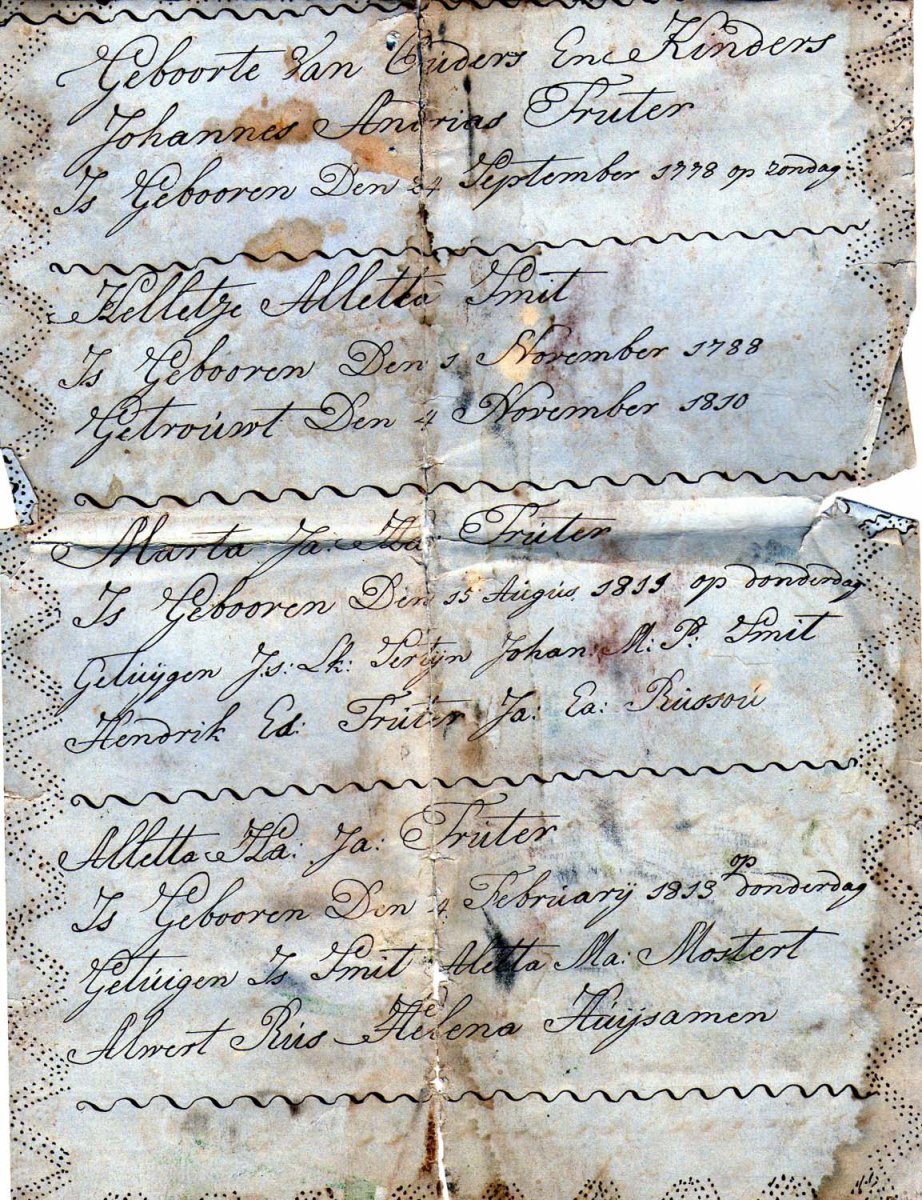 Geboorte Van Ouders En Kinders
Johannes Andrias Trúter
Is Gebooren Den 24 September 1778 op zondag
Helletje Alletta Smit
Is Gebooren Den 1 November 1788
Getroúwt Den 4 November 1810
Marta Ja: Ha: Trúter
Is Gebooren Den 15 Aúgús 1811 op donderdag
Getúÿgen Js: Lk: Johan: M: P: Smit
Hendrik Ed: Trúter Ja: Ea: Rússoú
Alletta Ha: Ja: Trúter
Is Gebooren Den 4 Februarÿ 1813 op donderdag
Getúigen Is Smit Aletta Ma: Mostert
Alwert Rús Helena Húÿsamen